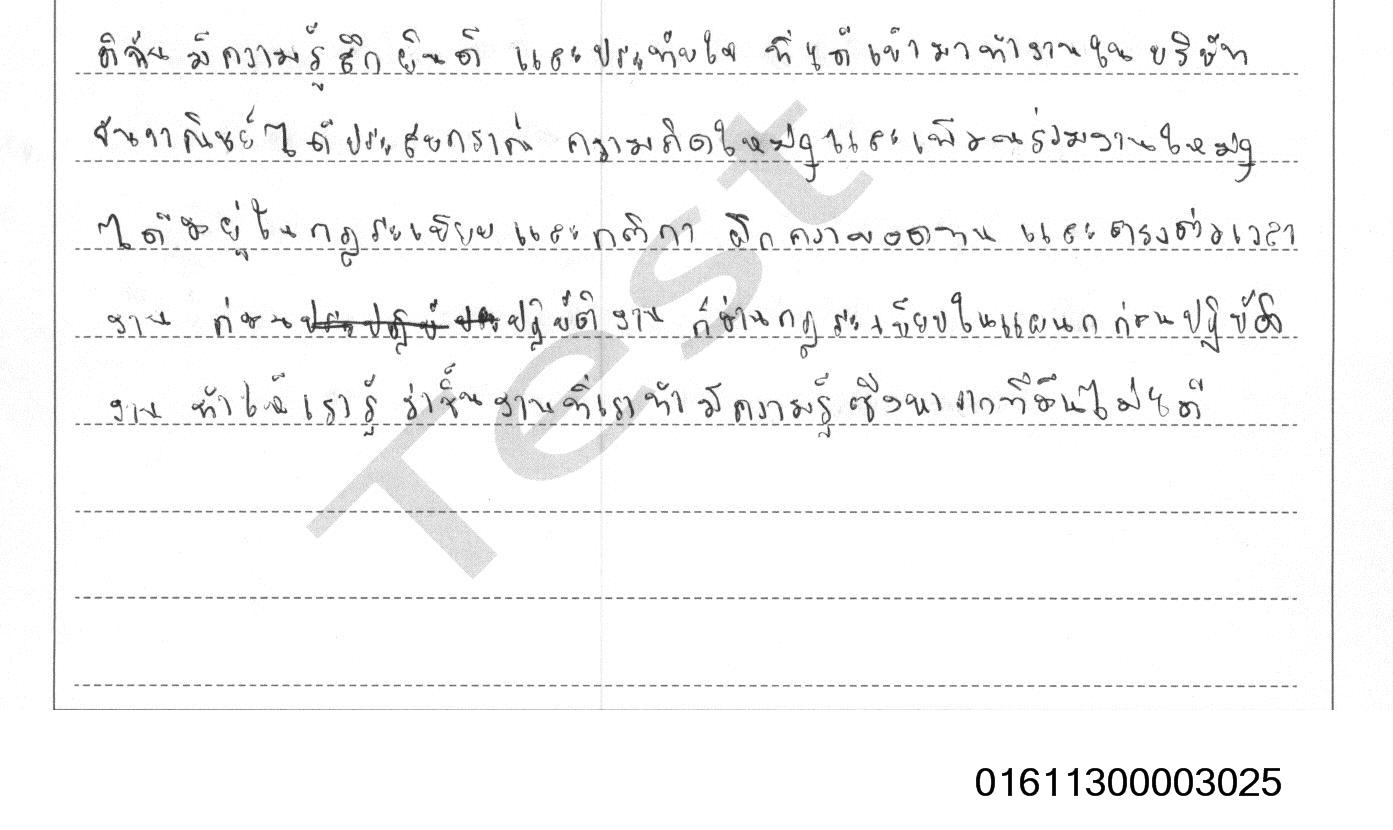 ดิฉันมีความรู้สึกยินดี และประทับใจ ที่ได้เข้ามาทำงานใน บริษัท
ได้ประสบการณ์ ความคิดใหม่ๆและเพื่อนร่วมงานใหม่ๆ
ได้อยู่ในกฎระเบียบและกติกา ฝึกความอดทน และตรงต่อเวลา
งาน ก่อนปฏิบัติงาน ก็อ่านกฎระเบียบในแผนกก่อนปฏิบัติ
งาน ทำให้เรารู้ ว่าชิ้นงานที่เราทำ มีความรู้ ซึ่งหาจากที่อื่นไม่ได้
Test
01611300003025